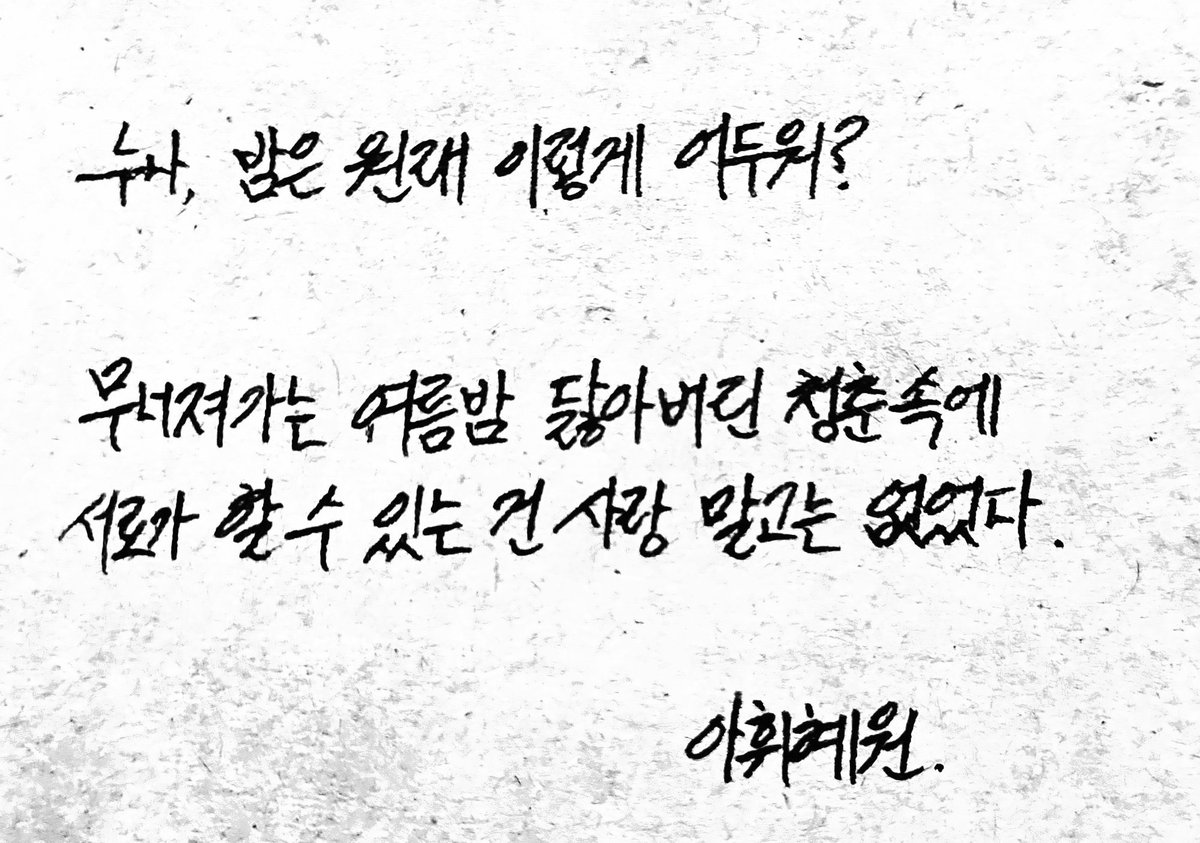 누나, 밤은 원래 이렇게 어두워?
무너져가는 여름밤 닳아버린 청춘속에
서로가 할 수 있는 건 사랑 말고는 없었다.
아휘혜원.